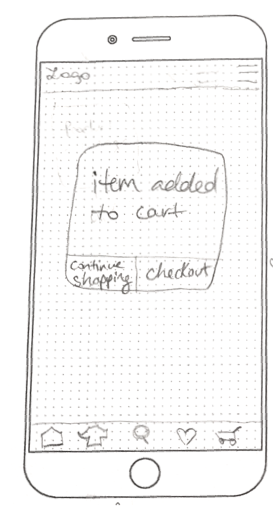 Logo
item added
to cart
continue
shopping
checkout